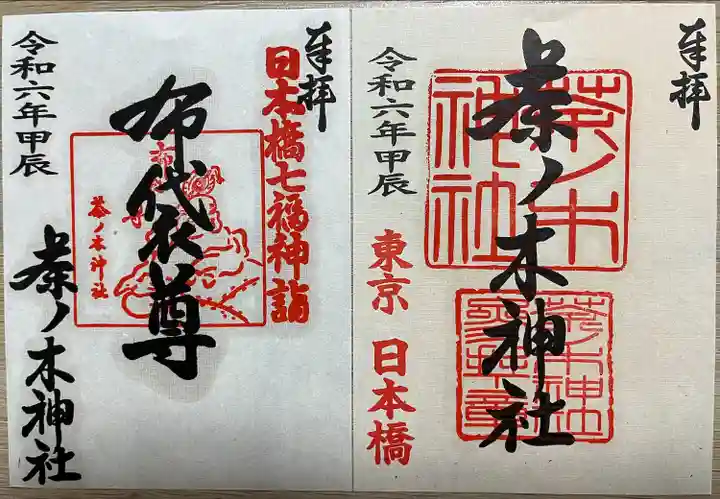 奉拝
茶ノ木神社
令和六年甲辰
東京 日本橋
茶ノ木
神社
茶ノ木神社
奉拝
日本橋七福神詣
布袋尊
令和六年甲辰
茶ノ木神社
茶ノ木神社